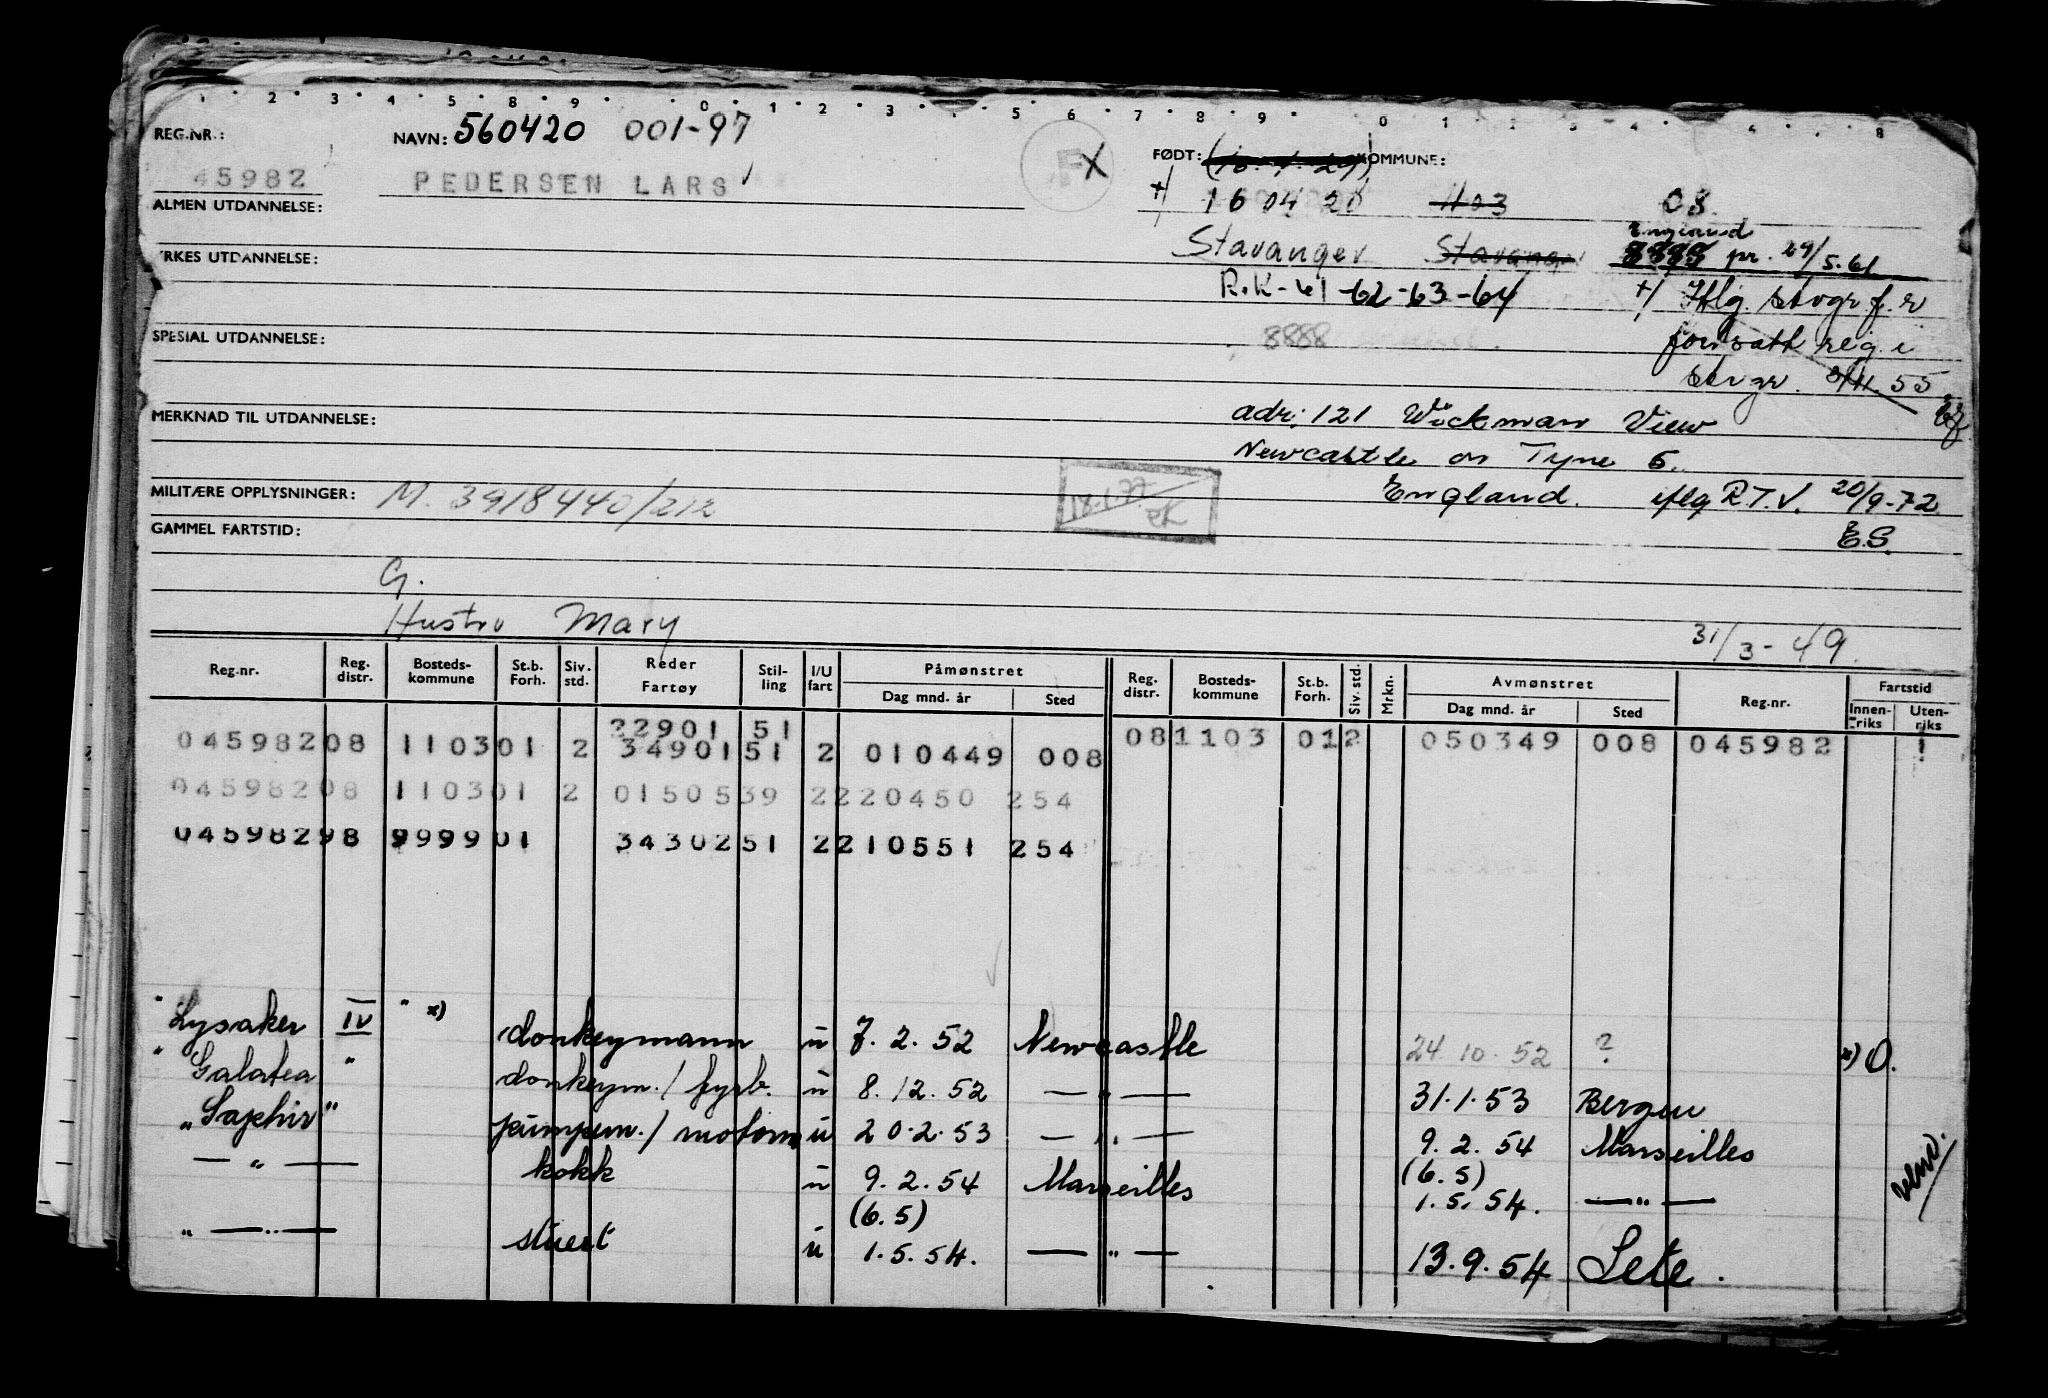 REG.NR.: NAVN: 560420 001-97
FØDT: KOMMUNE:
45982 PEDERSEN LARS
16 04 20 1103 08
ALMEN UTDANNELSE:
England
Stavanger pr. 29/5.61
YRKES UTDANNELSE:
R.K-61-62-63-64
Iflg. stvgr f.r
8888
fortsatt reg. i
SPESIAL UTDANNELSE:
stvgr. 55
adr: 121 Wickman View
MERKNAD TIL UTDANNELSE:
Newcastle on Tyne 5.
England. iflg R.T.V. 20/9-72
MILITÆRE OPPLYSNINGER: M. 3918440/212
E.S.
GAMMEL FARTSTID:
G.
Hustru Mary
31/3-49.
Reg.nr. Reg. distr. Bosteds-kommune St.b. Forh. Siv. std. Reder Fartøy Stil-ling I/U fart Påmønstret Dag mnd. år Sted Reg. distr. Bosteds-kommune St.b. Forh. Siv. std. Mrkn. Avmønstret Dag mnd. år Sted Reg.nr. Fartstid Innen-riks Uten-riks
22901 51
045982 08 1103 01 2 34901 51 2 010449 008 08 1103 01 2 050349 008 045982 1
045982 08 1103 01 2 01505 39 2 220450 254
045982 98 9999 01 34302 51 2 210551 254
"Lysaker IV" x) donkeymann u 7. 2. 52 Newcastle 24.10.52 ? x) 0.
"Galatea" donkeym./fyrb. u 8.12.52 — " — 31.1.53 Bergen
"Saphir" pumpem./motorm u 20.2.53 — " — 9.2.54 Marseilles
— " — kokk u 9.2.54 Marseilles (6.5) 1.5.54. — " —
" — " — stuert u (6.5) 1.5.54. — " — 13.9.54 Sete.